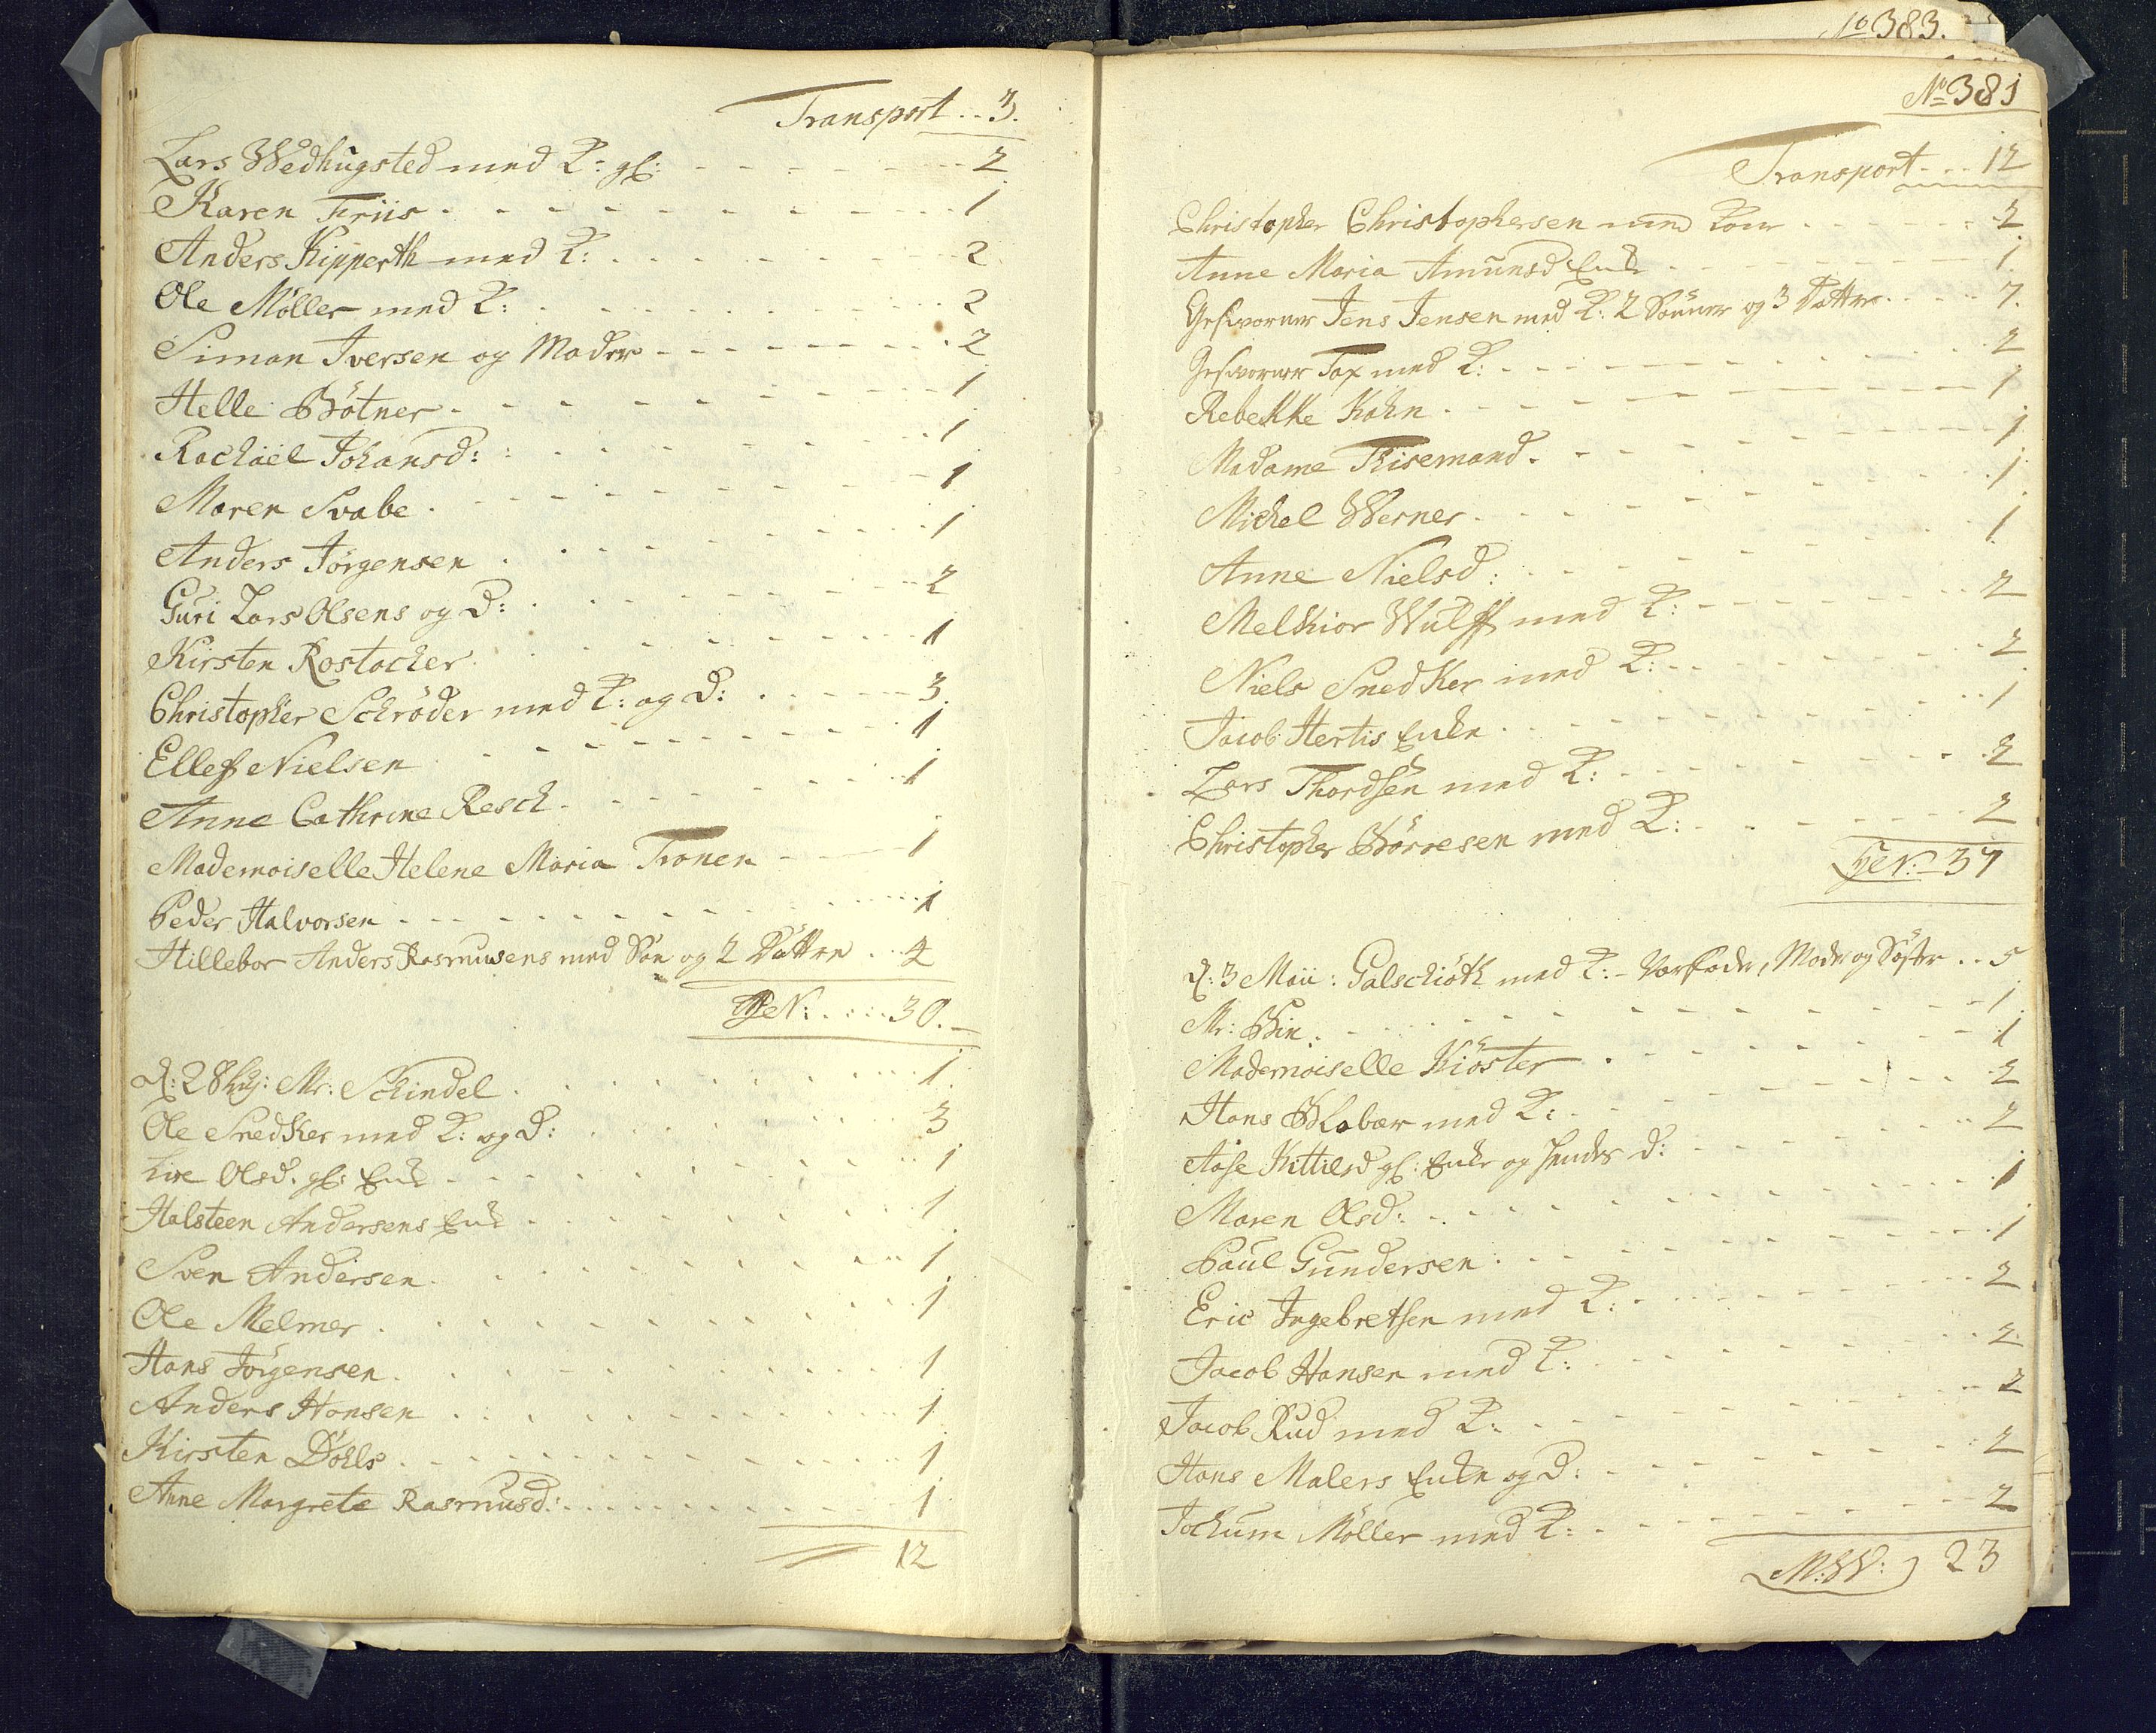 Transport .. 3.
Lars Wedhugsted med K: gl: 2
Karen Friis 1
Anders Kipperth med K: 2
Ole Möller med K: 2
Simon Iversen og Moder 2
Helle Bötner 1
Rachäel Johansd: 1
Maren Svabe 1
Anders Jörgensen 1
Guri Lars Olsens og D: 2
Kirsten Rostocher 1
Christopher Schröder med K: og D: 3
Ellef Nielsen 1
Anne Cathrine Resch 1
Mademoiselle Helene Maria Tronen 1
Peder Halvorsen 1
Hillebor Anders Rasmusens med Sön og 2 Döttre .. 4
30.
d: 28 huj: Mr: Schindel 1
Ole Snedker med K: og D: 3
Live Olsd. gl: Enke 1
Halsteen Andersens Enke 1
Sven Andersen 1
Ole Melmer 1
Hans Jörgensen 1
Anders Hansen 1
Kirsten Döhls 1
Anne Margrete Rasmusd: 1
12
No 383.
No 381
Transport ... 12
Christopher Christophersen med Kone 2
Anne Maria Amunsd Enke 1
Gesvorner Jens Jensen med K: 2 Sönner og 3 Döttre 7.
Gesvorner Tax med K: 2
Rebekke Kohn 1
Madame Thisemand 1
Michel Werner 1
Anne Nielsd: 1
Melkior Wulff med K: 2
Niels Snedker med K: 2
Jacob Hertis Enke 1
Lars Thordsen med K: 2
Christopher Börresen med K: 2
37
d: 3 Maii: Galschiöth med K: - Vorfader, Moder og Söster .. 5
Mr: Bin 1
Mademoiselle Kiöster 1
Hans Klabær med K: 2
Aase Kittilsd gl: Enke og hendes D: 2
Maren Olsd: 1
Paul Gundersen 1
Eric Ingebretsen med K: 2
Jacob Hansen med K: 2
Jacob Rud med K: 2
Hans Malers Enke og D: 2
Jochum Möller med K: 2
M:W: 23